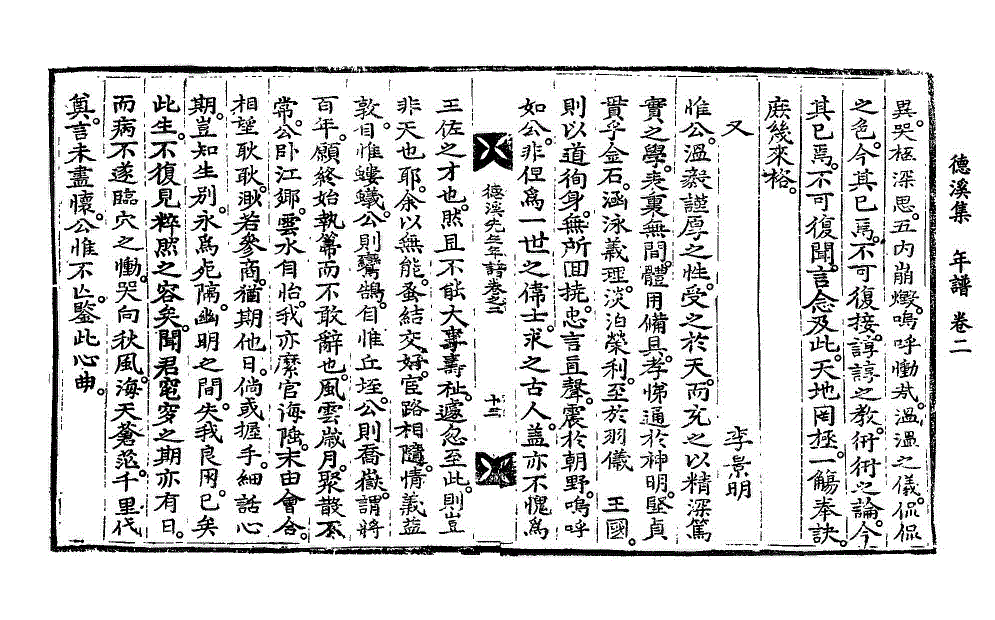 德溪集 年譜 卷二
異哭極深思五内崩爕嗚呼慟㢤溫溫之儀侃侃
之色今其已焉不可復接諄諄之教衎衎之論今
其已焉不可復聞言念及此天地罔極一觴奉訣
庶幾來格
又 李景明
惟公溫毅謹厚之性受之於天而充之以精深篤
實之學表裏無間體用備具孝悌通於神明堅貞
貫乎金石涵泳義理淡泊榮利至於羽儀 王國
則以道徇身無所回撓忠言直聲震於朝野嗚呼
如公非但爲一世之偉士求之古人盖亦不愧爲
德溪先生年譜卷之二 十三
王佐之才也然且不能大專壽祉遽忽至此則豈
非天也耶余以無能蚤結交好宦路相隨情義益
敦自惟螻蟻公則鸞鵠自惟丘垤公則喬嶽謂將
百年願終始執箒而不敢辭也風雲歲月聚散不
常公卧江鄉雲水自怡我亦縻官海陰末由會合
相望耿耿渺若參商猶期他日倘或握手細話心
期豈知生別永爲死隔幽明之間失我良朋已矣
此生不復見粹然之容矣聞君窀穸之期亦有日
而病不遂臨穴之慟哭向秋風海天蒼茫千里代
奠言未盡懷公惟不亡鑒此心曲